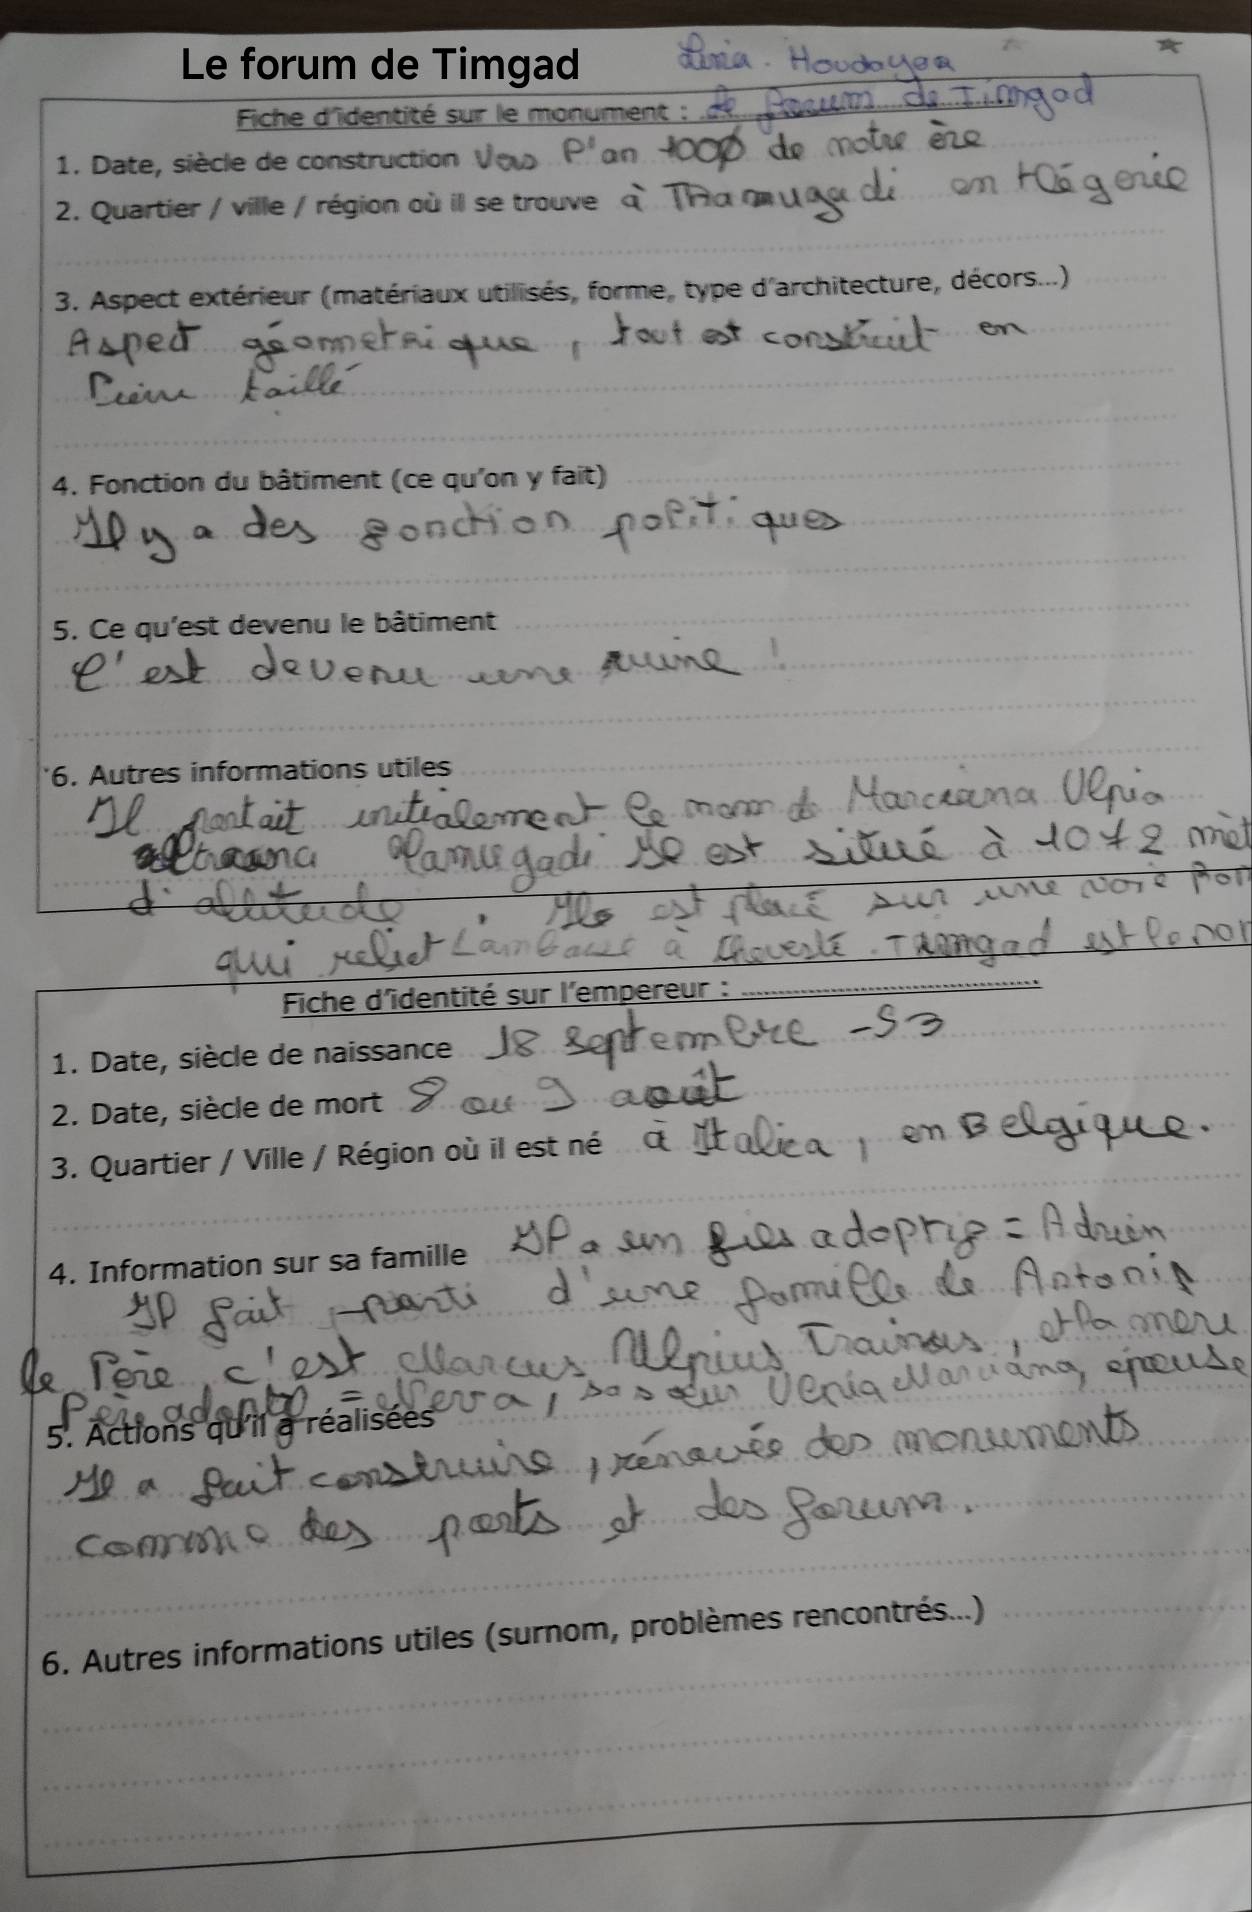 Le forum de Timgad
Houdayea
Fiche d'identité sur le monument : le forum de Timgad
1. Date, siècle de construction Vers l'an 100 de notre ère
2. Quartier / ville / région où il se trouve à Thamugadi en Algérie
3. Aspect extérieur (matériaux utilisés, forme, type d'architecture, décors...)
Aspect géometrique, tout est construit en
Pierre taillé
4. Fonction du bâtiment (ce qu'on y fait)
Il y a des fonction politiques
5. Ce qu'est devenu le bâtiment
C'est devenu une ruine !
6. Autres informations utiles
Il portait initialement le nom de Marciana Ulpia
Traiana Tamugadi Il est situé à 1072 mèt
d'altitude. Il est placé sur une voie
qui reliet à Theveste. Timgad est le nom
Fiche d'identité sur l'empereur :
1. Date, siècle de naissance 18 septembre -53
2. Date, siècle de mort 8 ou 9 août
3. Quartier / Ville / Région où il est né à Italica, en Belgique.
4. Information sur sa famille Il a un fils adoptif = Adrien
Il fait parti d'une famille de Antonin
le Père, c'est Marcus Ulpius Trainus, et la mere
Père adoptif = Nerva, sa sœur Ulpia Marciana, épouse
5. Actions qu'il a réalisées
Il a fait construire, rénovée des monuments
comme des ports et des forum.
6. Autres informations utiles (surnom, problèmes rencontrés...)